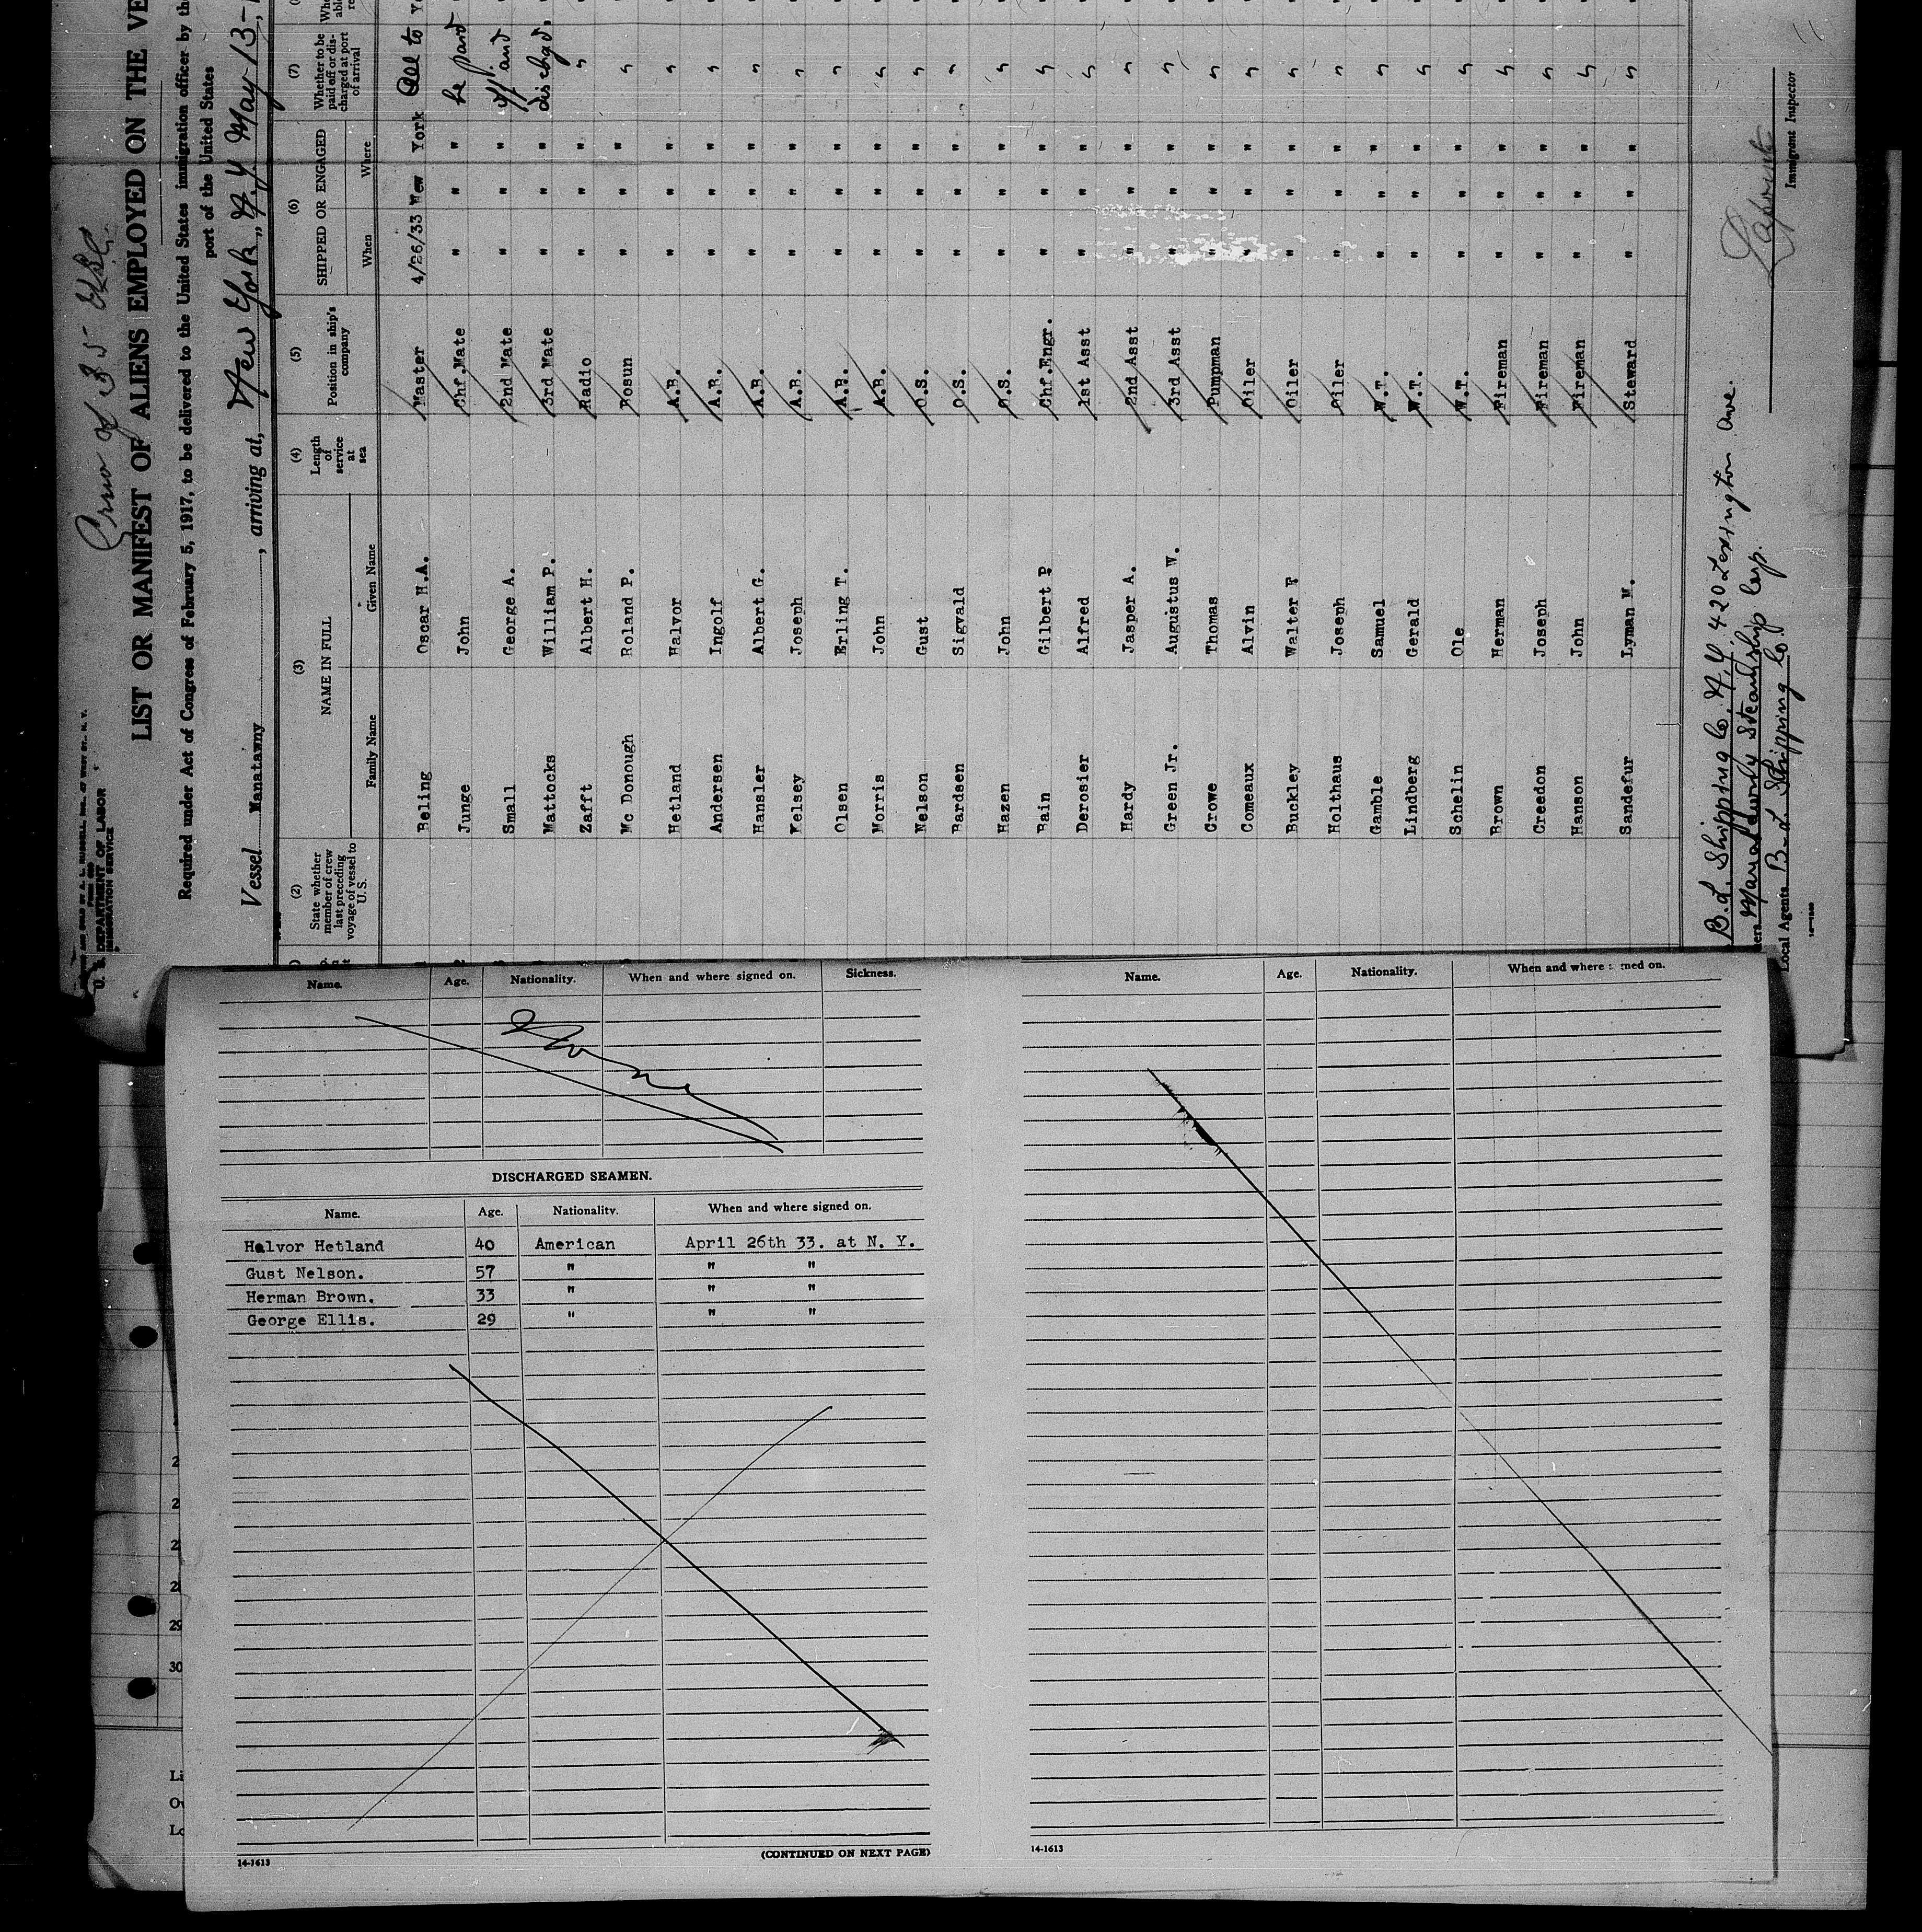 Crew of 35
U. S. DEPARTMENT OF LABOR
IMMIGRATION SERVICE
LIST OR MANIFEST OF ALIENS EMPLOYED ON THE VE
Required under Act of Congress of February 5, 1917, to be delivered to the United States immigration officer by th
port of the United States
Vessel Manatawny , arriving at, New York, N.Y. May-13-
(2) (3) (4) (5) (6) (7)
State whether member of crew last preceding voyage of vessel to U. S. NAME IN FULL Length of service at sea Position in ship's company SHIPPED OR ENGAGED Whether to be paid off or discharged at port of arrival
Family Name Given Name When Where
Beling Oscar H.A. Master 4/26/33 New York All to
Junge John Chf.Mate " " " be paid
Small George A. 2nd Mate " " " off and
Mattocks William P. 3rd Mate " " " dischgd.
Zafft Albert H. Radio " " " "
Mc Donough Roland P. Bosun " " " "
Hetland Halvor A.B. " " " "
Andersen Ingolf A.B. " " " "
Hansler Albert G. A.B. " " " "
Kelsey Joseph A.B. " " " "
Olsen Erling T. A.B. " " " "
Morris John A.B. " " " "
Nelson Gust O.S. " " " "
Bardsen Sigvald O.S. " " " "
Hazen John O.S. " " " "
Bain Gilbert P Chf.Engr. " " " "
Derosier Alfred 1st Asst " " " "
Hardy Jasper A. 2nd Asst " " " "
Green Jr. Augustus W. 3rd Asst " " " "
Crowe Thomas Pumpman " " " "
Comeaux Alvin Oiler " " " "
Buckley Walter F Oiler " " " "
Holthaus Joseph Oiler " " " "
Gamble Samuel W.T. " " " "
Lindberg Gerald W.T. " " " "
Schelin Ole W.T. " " " "
Brown Herman Fireman " " " "
Creedon Joseph Fireman " " " "
Hanson John Fireman " " " "
Sandefur Lyman M. Steward " " " "
B.L. Shipping Co. N.Y. 420 Lexington Ave.
ners Manatawny Steamship Corp.
Local Agents B.L. Shipping Co.
Immigrant Inspector
Name. Age. Nationality. When and where signed on. Sickness.
None
DISCHARGED SEAMEN.
Name. Age. Nationality. When and where signed on.
Halvor Hetland 40 American April 26th 33. at N. Y.
Gust Nelson. 57 " " "
Herman Brown. 33 " " "
George Ellis. 29 " " "
14-1613
(CONTINUED ON NEXT PAGE)
Name. Age. Nationality. When and where signed on.
14-1613
2
2
2
2
29
30
Li
Ov
Lc